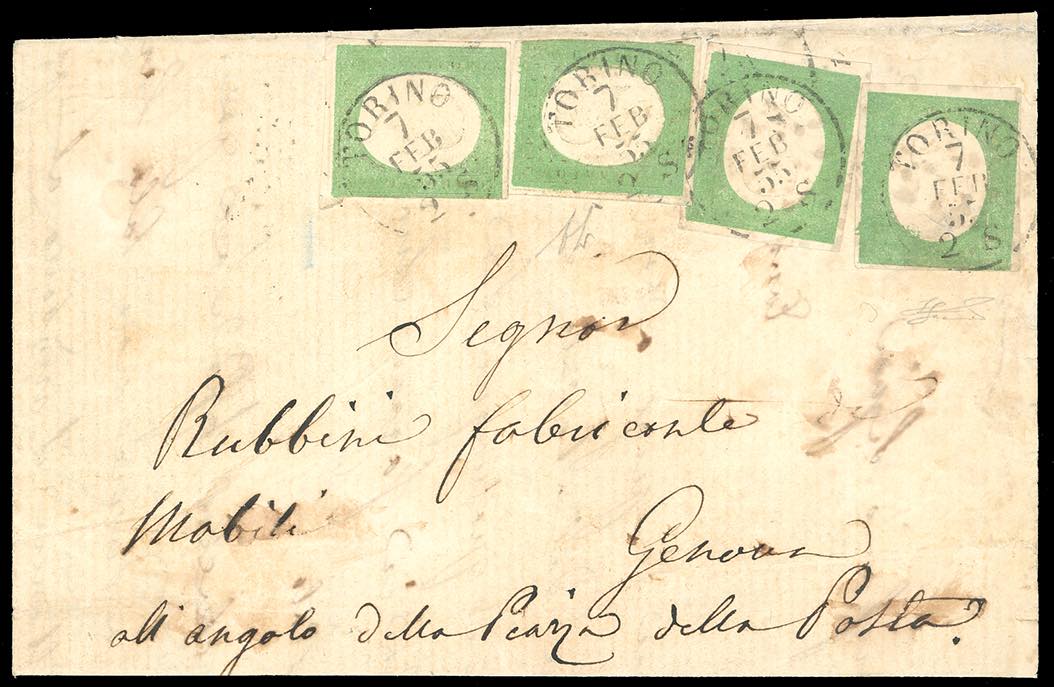 TORINO
7
FEB
55
2 S
TORINO
7
FEB
55
2 S
TORINO
7
FEB
55
2 S
TORINO
7
FEB
55
2 S
Segnor
Rubbini fabricante
Mobili
Genova
all angolo della Piazza della Posta.